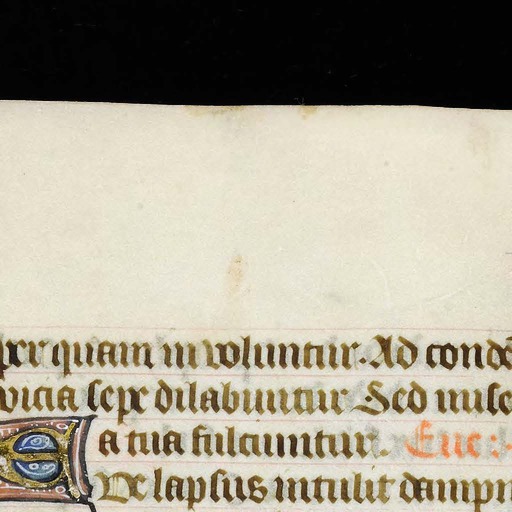 quam in voluntur. Ad conde
vicia sepe dilabuntur Sed mise
a tua fulcuntur. Eue:
Ve lapsus intulit dampn